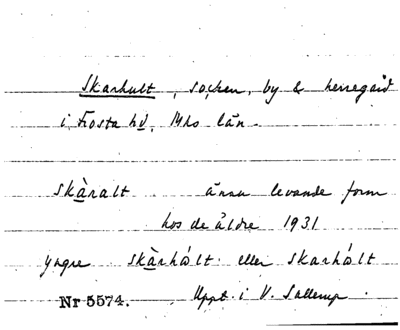 Skarhult, socken, by & herregård
i Frosta hd, Mho län.
skàralt ännu levande form
hos de äldre 1931
yngre skàrhålt eller skarhålt
Nr 5574. Uppt. i V. Sallerup.